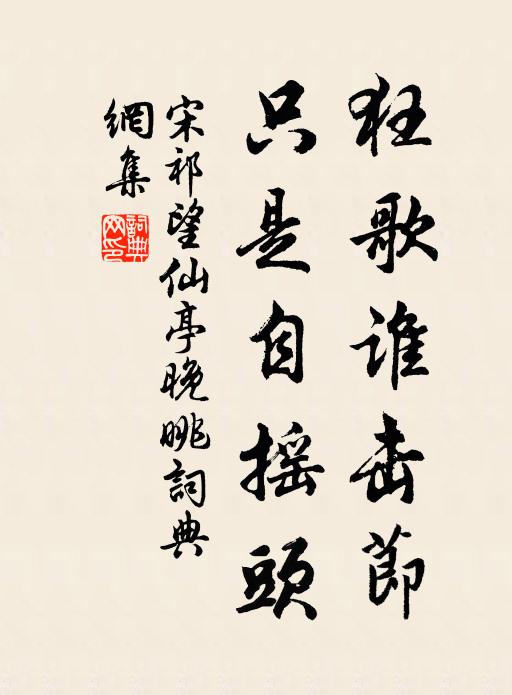 狂歌谁击節
只是自摇頭
宋祁望仙亭晚眺詞典
網集
詞典網印